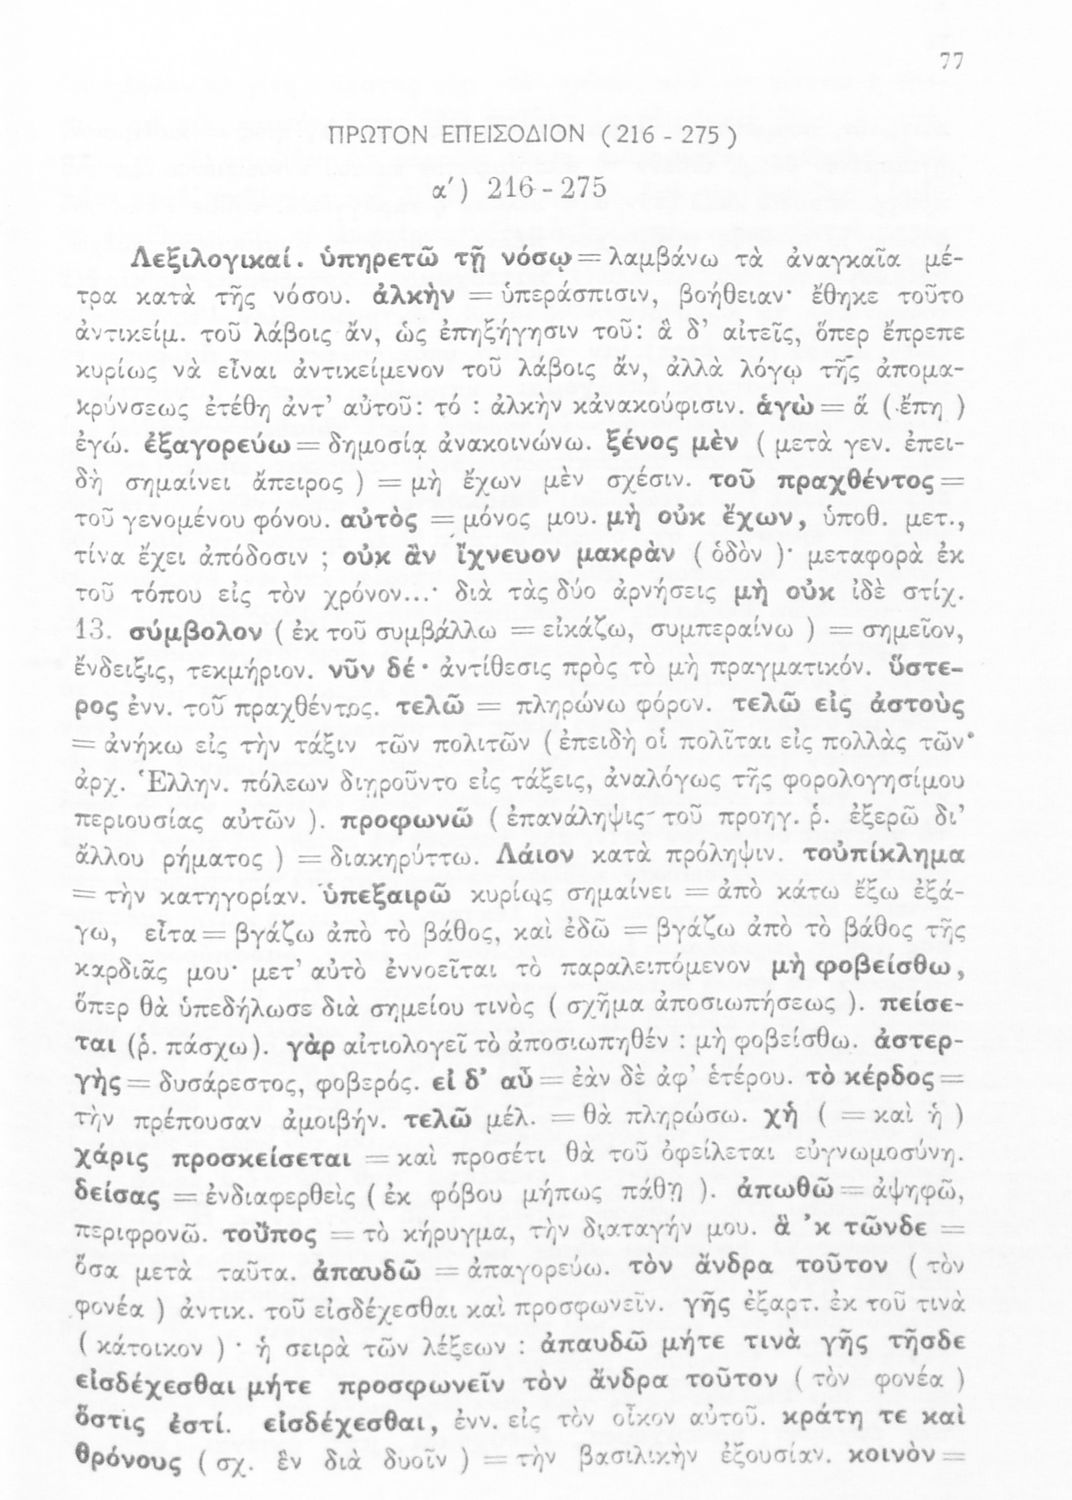 77
ΠΡΩΤΟΝ ΕΠΕΙΣΟΔΙΟΝ (216 - 275)
α′) 216 - 275
Λεξιλογικαί. ὑπηρετῶ τῇ νόσῳ = λαμβάνω τὰ ἀναγκαῖα μέ-
τρα κατὰ τῆς νόσου. ἀλκὴν = ὑπεράσπισιν, βοήθειαν· ἔθηκε τοῦτο
ἀντικείμ. τοῦ λάβοις ἄν, ὡς ἐπηξήγησιν τοῦ: ἃ δ’ αἰτεῖς, ὅπερ ἔπρεπε
κυρίως νὰ εἶναι ἀντικείμενον τοῦ λάβοις ἄν, ἀλλὰ λόγῳ τῆς ἀπομα-
κρύνσεως ἐτέθη ἀντ’ αὐτοῦ: τό : ἀλκὴν κἀνακούφισιν. ἁγὼ = ἅ (ἔπη )
ἐγώ. ἐξαγορεύω = δημοσίᾳ ἀνακοινώνω. ξένος μὲν ( μετὰ γεν. ἐπει-
δὴ σημαίνει ἄπειρος ) = μὴ ἔχων μὲν σχέσιν. τοῦ πραχθέντος =
τοῦ γενομένου φόνου. αὐτὸς = μόνος μου. μὴ οὐκ ἔχων, ὑποθ. μετ.,
τίνα ἔχει ἀπόδοσιν ; οὐκ ἂν ἴχνευον μακρὰν ( ὁδὸν )· μεταφορὰ ἐκ
τοῦ τόπου εἰς τὸν χρόνον...· διὰ τὰς δύο ἀρνήσεις μὴ οὐκ ἰδὲ στίχ.
13. σύμβολον ( ἐκ τοῦ συμβάλλω = εἰκάζω, συμπεραίνω ) = σημεῖον,
ἔνδειξις, τεκμήριον. νῦν δέ· ἀντίθεσις πρὸς τὸ μὴ πραγματικόν. ὕστε-
ρος ἐνν. τοῦ πραχθέντος. τελῶ = πληρώνω φόρον. τελῶ εἰς ἀστοὺς
= ἀνήκω εἰς τὴν τάξιν τῶν πολιτῶν ( ἐπειδὴ οἱ πολῖται εἰς πολλὰς τῶν
ἀρχ. Ἑλλην. πόλεων διῃροῦντο εἰς τάξεις, ἀναλόγως τῆς φορολογησίμου
περιουσίας αὐτῶν ). προφωνῶ ( ἐπανάληψις τοῦ προηγ. ῥ. ἐξερῶ δι’
ἄλλου ρήματος ) = διακηρύττω. Λάιον κατὰ πρόληψιν. τοὐπίκλημα
= τὴν κατηγορίαν. ὑπεξαιρῶ κυρίως σημαίνει = ἀπὸ κάτω ἔξω ἐξά-
γω, εἶτα = βγάζω ἀπὸ τὸ βάθος, καὶ ἐδῶ = βγάζω ἀπὸ τὸ βάθος τῆς
καρδιᾶς μου· μετ’ αὐτὸ ἐννοεῖται τὸ παραλειπόμενον μὴ φοβείσθω,
ὅπερ θὰ ὑπεδήλωσε διὰ σημείου τινὸς ( σχῆμα ἀποσιωπήσεως ). πείσε-
ται (ῥ. πάσχω). γὰρ αἰτιολογεῖ τὸ ἀποσιωπηθέν : μὴ φοβείσθω. ἀστερ-
γὴς = δυσάρεστος, φοβερός. εἰ δ’ αὖ = ἐὰν δὲ ἀφ’ ἑτέρου. τὸ κέρδος =
τὴν πρέπουσαν ἀμοιβήν. τελῶ μέλ. = θὰ πληρώσω. χἡ ( = καὶ ἡ )
χάρις προσκείσεται = καὶ προσέτι θὰ τοῦ ὀφείλεται εὐγνωμοσύνη.
δείσας = ἐνδιαφερθεὶς ( ἐκ φόβου μήπως πάθῃ ). ἀπωθῶ = ἀψηφῶ,
περιφρονῶ. τοὔπος = τὸ κήρυγμα, τὴν διαταγήν μου. ἃ ’κ τῶνδε =
ὅσα μετὰ ταῦτα. ἀπαυδῶ = ἀπαγορεύω. τὸν ἄνδρα τοῦτον ( τὸν
φονέα ) ἀντικ. τοῦ εἰσδέχεσθαι καὶ προσφωνεῖν. γῆς ἐξαρτ. ἐκ τοῦ τινὰ
( κάτοικον ) · ἡ σειρὰ τῶν λέξεων : ἀπαυδῶ μήτε τινὰ γῆς τῆσδε
εἰσδέχεσθαι μήτε προσφωνεῖν τὸν ἄνδρα τοῦτον ( τὸν φονέα )
ὅστις ἐστί. εἰσδέχεσθαι, ἐνν. εἰς τὸν οἶκον αὐτοῦ. κράτη τε καὶ
θρόνους ( σχ. ἓν διὰ δυοῖν ) = τὴν βασιλικὴν ἐξουσίαν. κοινὸν =